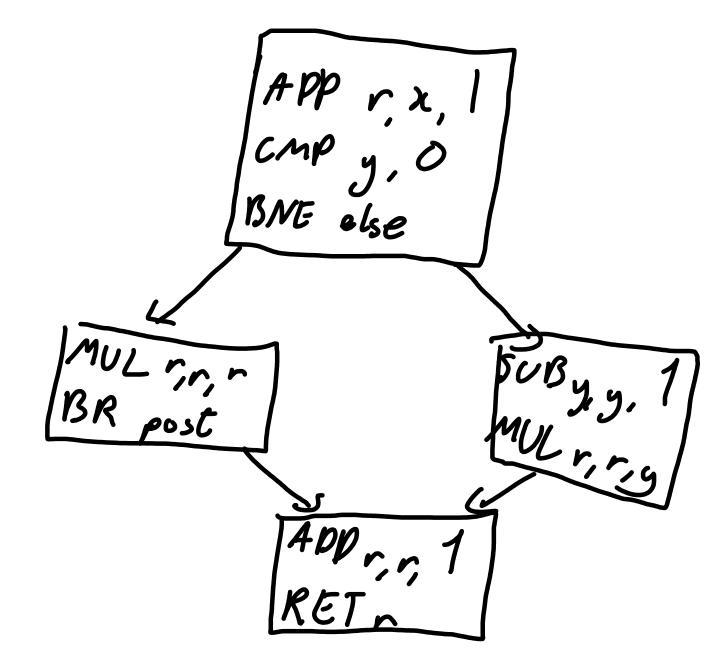 ADD r, x, 1
CMP y, 0
BNE else
MUL r, r, r
BR post
SUB y, y, 1
MUL r, r, y
ADD r, r, 1
RET r